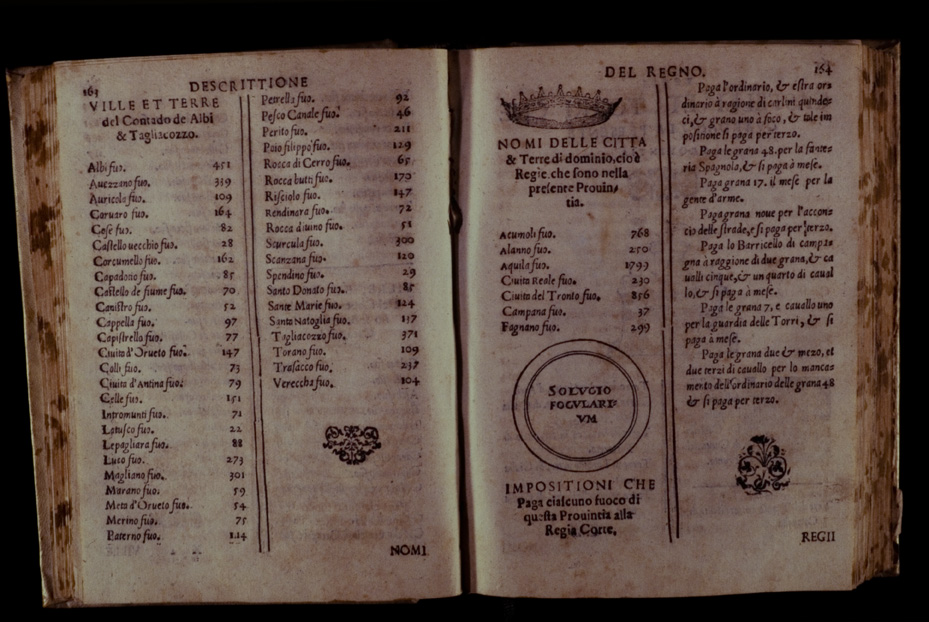 163
DESCRITTIONE
VILLE ET TERRE
del Contado de Albi
& Tagliacozzo.
Albi fuo. 451
Auezzano fuo. 339
Auricola fuo. 109
Coruaro fuo. 164
Cese fuo. 82
Castello uecchio fuo. 28
Corcumello fuo. 162
Capadotio fuo. 85
Castello de fiume fuo. 70
Canistro fuo. 52
Cappella fuo. 97
Capistrello fuo. 77
Ciuita d'Orueto fuo. 147
Colli fuo. 73
Ciuita d'Antina fuo. 79
Celle fuo. 151
Intromunti fuo. 71
Latusco fuo. 22
Lepagliara fuo. 88
Luco fuo. 273
Magliano fuo. 301
Marano fuo. 59
Meta d'Orueto fuo. 54
Merino fuo. 75
Paterno fuo. 114
Petrella fuo. 92
Pesco Canale fuo. 46
Perito fuo. 211
Poio filippo fuo. 129
Rocca di Cerro fuo. 65
Rocca butti fuo. 170
Risciolo fuo. 147
Rendinara fuo. 72
Rocca diuino fuo. 51
Scurcula fuo. 300
Scanzana fuo. 120
Spendino fuo. 29
Santo Donato fuo. 85
Sante Marie fuo. 124
Santa Natoglia fuo. 137
Tagliacozzo fuo. 371
Torano fuo. 109
Trasacco fuo. 237
Verecchia fuo. 104
NOMI
DEL REGNO.
164
NOMI DELLE CITTA
& Terre di dominio, cio è
Regie, che sono nella
presente Prouin/
tia.
Acumoli fuo. 768
Alanno fuo. 250
Aquila fuo. 1799
Ciuita Reale fuo. 230
Ciuita del Tronto fuo. 856
Campana fuo. 37
Fagnano fuo. 299
SOLVGIO
FOCVLARI
VM
IMPOSITIONI CHE
Paga ciascuno fuoco di
questa Prouintia alla
Regia Corte.
Paga l'ordinario, & estra or=
dinario à ragione di carlini quinde=
ci, & grano uno à foco, & tale im
positione si paga per terzo.
Paga le grana 48. per la fante=
ria Spagnola, & si paga à mese.
Paga grana 17. il mese per la
gente d'arme.
Paga grana noue per l'accon=
cio delle strade, e si paga per terzo.
Paga lo Barricello di campa=
gna à raggione di due grana, & ca
ualli cinque, & un quarto di caual
lo, & si paga à mese.
Paga le grana 7. e cauallo uno
per la guardia delle Torri, & si
paga à mese.
Paga le grana due & mezo, et
due terzi di cauallo per lo manca=
mento dell'ordinario delle grana 48
& si paga per terzo.
REGII